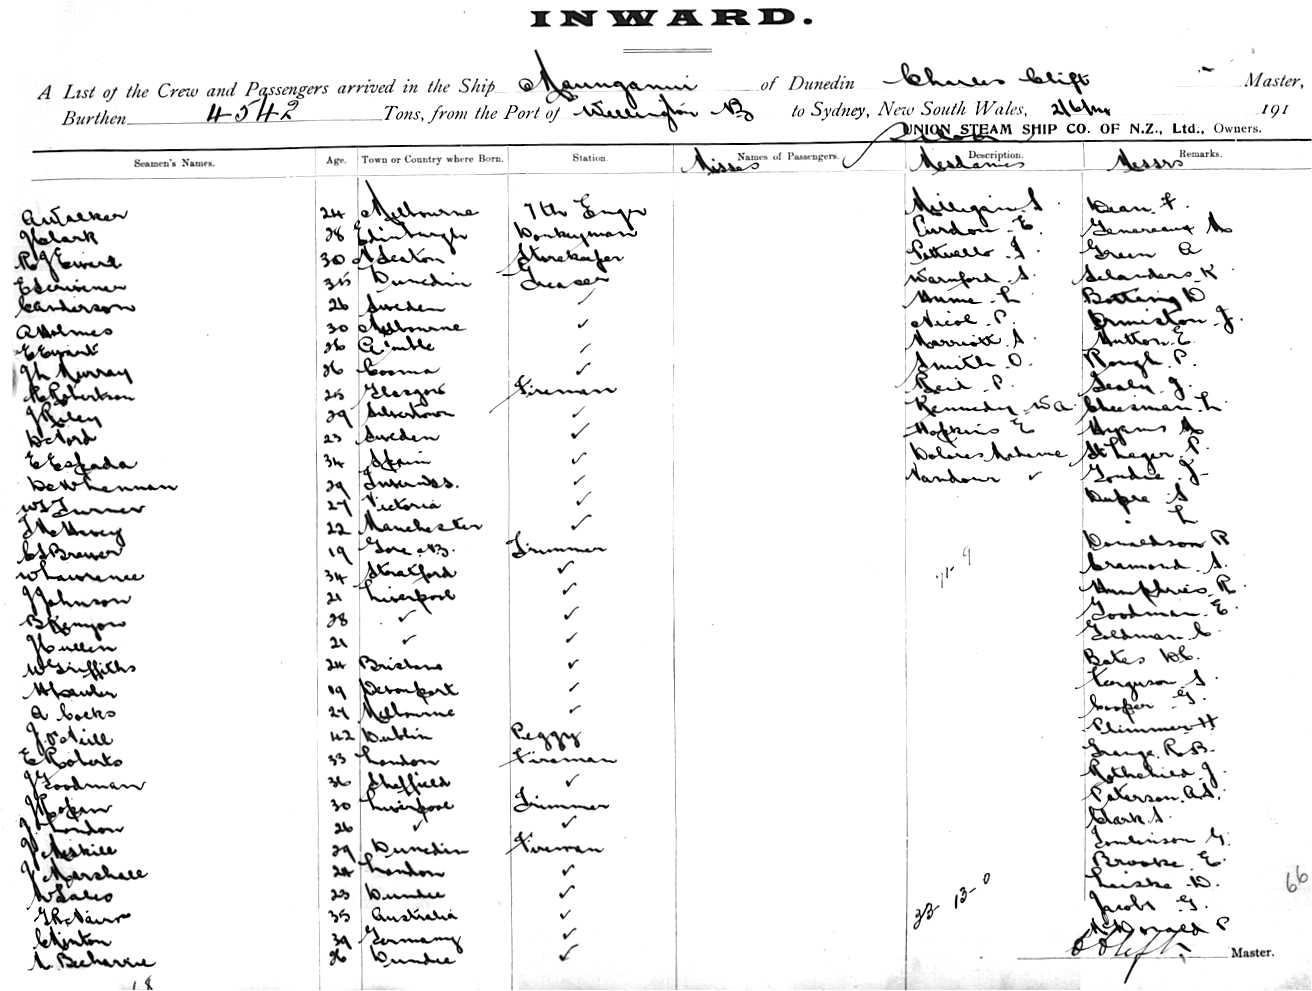 INWARD.
A List of the Crew and Passengers arrived in the Ship Maunganui of Dunedin Charles Clift Master,
Burthen 4542 Tons, from the Port of Wellington NZ to Sydney, New South Wales, 2/6/14 191
UNION STEAM SHIP CO. OF N.Z., Ltd., Owners.
Seamen's Names. Age. Town or Country where Born. Station. Names of Passengers. Description. Remarks.
Misses Mesdames Messrs
A Walker 24 Melbourne 7th Engr Milligan S. Dean F.
J Clark 28 Edinburgh Donkeyman Purdon E. Genereaux M
R J Ewen 30 Seaton Storekeeper Pettuello J. Green A
E Scrivener 35 Dunedin Greaser Warnford S. Selanders K
C Anderson 26 Sweden ✓ Hume L Botting D
A Holmes 30 Melbourne ✓ Nicol P. Ormiston J.
E Ewart 26 ✓ Marriott S. Hutton E.
J h Murray 26 Cooma ✓ Smith O. Rough P.
R Robertson 25 Glasgow Fireman Reid P. Sealy J.
J Riley 29 Silvertown ✓ Kennedy W A Cheesman L
D Nord 23 Sweden ✓ Hopkins E Hyams M
E Espada 34 Spain ✓ Dolores Madame St Leger P.
D McWhennan 29 ✓ Nandour ✓ Goudie J
W S Turner 27 Victoria ✓ Dupre S
J McHarvey 22 Manchester ✓ " L
C S Brewer 19 Gore NZ. Trimmer Donaldson R
W Lawrence 34 Stratford ✓ Cramond S.
J Johnson 21 Liverpool ✓ Humphries R.
B Kenyon 28 ✓ ✓ Goodman E.
J Cullen 21 ✓ ✓ Goldman C.
W Griffiths 24 Brisbane ✓ Bates D C.
H Lawler 19 Devonport ✓ Ferguson S.
A Cocks 27 Melbourne ✓ Cooper G.
J O'Neill 42 Dublin Peggy Plimmer H
E Roberts 33 London Fireman Grange R. B.
J Goodman 36 Sheffield ✓ Rothchild J.
J Hogan 30 Liverpool Trimmer Paterson A S.
J London 26 ✓ ✓ Clark S.
J Miskill 29 Dunedin Fireman Tomlinson G.
J Marshall 24 London ✓ Brooke E.
W Sales 23 Dundee ✓ Leiske D.
G R Nairn 35 Australia ✓ Jacobs G.
C Linton 39 Germany ✓ McDonald P
A Bechervie 26 Dundee ✓
33 13-0
66
C Clift Master.
18